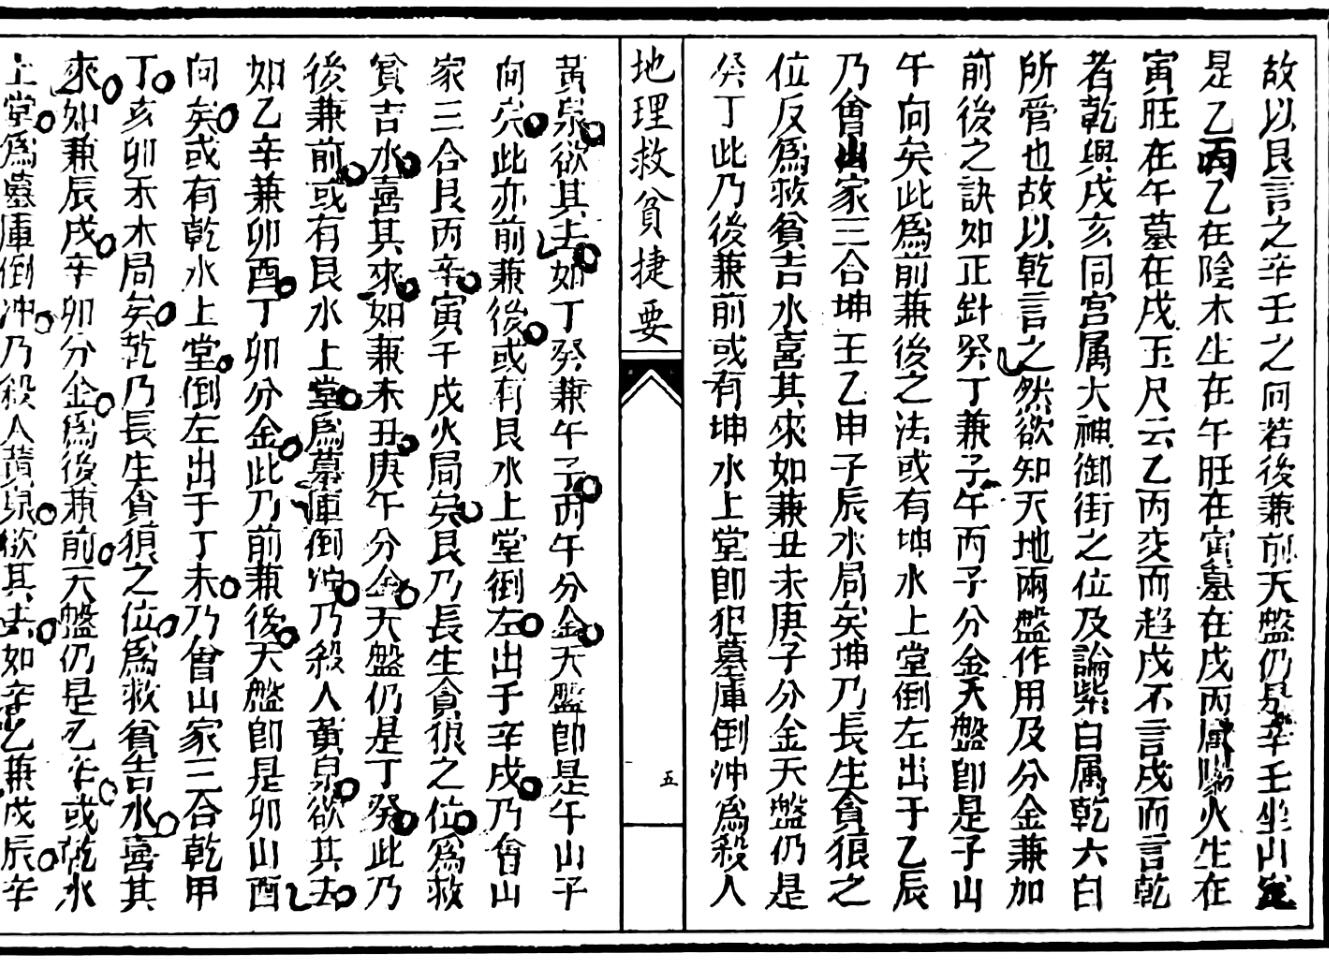 故以艮言之辛壬之向若後兼前天盤仍是辛壬坐山
是乙丙乙在陰木生在午旺在寅墓在戌丙屬陽火生在
寅旺在午墓在戌玉尺云乙丙交而趨戌不言戌而言乾
者乾與戌亥同宮属大神御街之位及論紫白属乾六白
所管也故以乾言之然欲知天地兩盤作用及分金兼加
前後之訣如正針癸丁兼子午丙子分金天盤即是子山
午向矣此爲前兼後之法或有坤水上堂倒左出于乙辰
乃會山家三合坤壬乙申子辰水局矣坤乃長生貪狼之
位反爲救貧吉水喜其來如兼丑未庚子分金天盤仍是
癸丁此乃後兼前或有坤水上堂即犯墓庫倒冲爲殺人
地理救貧捷要
五
黃泉欲其去如丁癸兼午子丙午分金天盤即是午山子
向矣此亦前兼後或有艮水上堂倒左出于辛戌乃會山
家三合艮丙辛寅午戌火局矣艮乃長生貪狼之位爲救
貧吉水喜其來如兼未丑庚午分金天盤仍是丁癸此乃
後兼前或有艮水上堂爲墓庫倒冲乃殺人黃泉欲其去
如乙辛兼卯酉丁卯分金此乃前兼後天盤即是卯山酉
向矣或有乾水上堂倒左出于丁未乃會山家三合乾甲
丁亥卯未木局矣乾乃長生貪狼之位爲救貧吉水喜其
來如兼辰戌辛卯分金爲後兼前天盤仍是乙辛或乾水
上堂爲墓庫倒冲乃殺人黃泉欲其去如辛乙兼戌辰辛